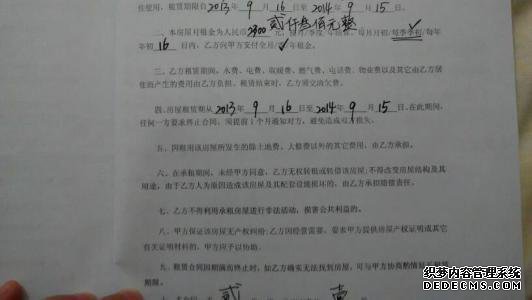 住使用，租赁期限自2013年9月16日至2014年9月15日。
二、本房屋月租金为人民币2300 贰仟叁佰元整
每季季初/每年
年初16日内，乙方向甲方支付全月/季/年租金。
三、乙方租赁期间，水费、电费、取暖费、燃气费、电话费、物业费以及其它由乙方居
住而产生的费用由乙方负担。租赁结束时，乙方须交清欠费。
四、房屋租赁期从2013年9月16日至2014年9月15日。在此期间，
任何一方要求终止合同，须提前1个月通知对方，避免造成双方损失。
五、因租用该房屋所发生的除土地费、大修费以外的其它费用，由乙方承担。
六、在承租期间，未经甲方同意，乙方无权转租或转借该房屋；不得改变房屋结构及其
用途，由于乙方人为原因造成该房屋及其配套设施损坏的，由乙方承担赔偿责任。
七、乙方不得利用承租房屋进行非法活动，损害公共利益的。
八、甲方保证该房屋无产权纠纷；乙方因经营需要，要求甲方提供房屋产权证明或其它
有关证明材料的，甲方应予以协助。
九、租赁合同因期满而终止时，如乙方确实无法找到房屋，可与甲方协商酌情延长租赁
期限。
贰 壹
织梦内容管理系统
DEDECMS.COM